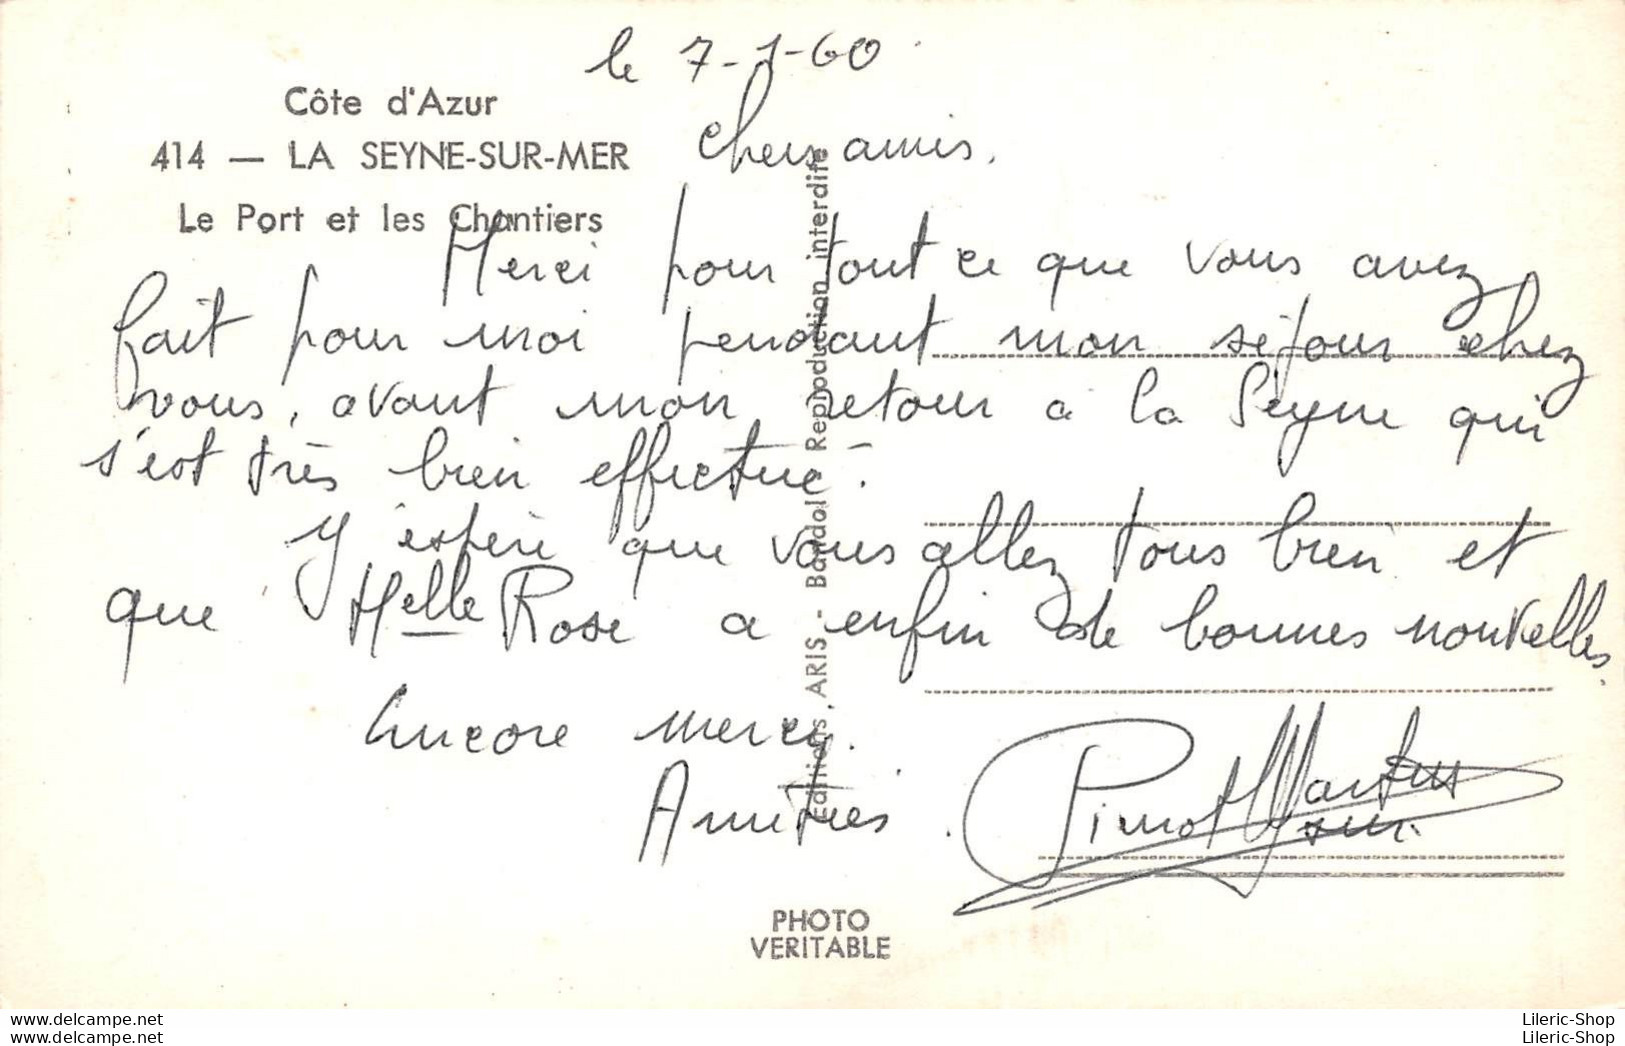 le 7-1-60
Côte d'Azur
414 — LA SEYNE-SUR-MER
Le Port et les Chantiers
Chers amis,
Merci pour tout ce que vous avez
fait pour moi pendant mon séjour chez
vous, avant mon retour a la Seyne qui
s'est très bien effectué.
J'espère que vous allez tous bien et
que Melle Rose a enfin de bonnes nouvelles.
Encore mercy.
Amitiés.
Editions ARIS - Bandol - Reproduction interdite
PHOTO
VERITABLE
www.delcampe.net
www.delcampe.net
Lileric-Shop
Lileric-Shop